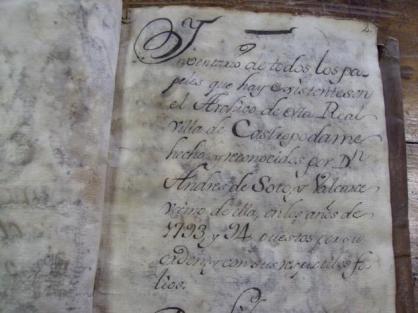 Inventario de todos los pa-
peles que hay existentes en
el Archivo de esta Real
Villa de Castropodame
hecho, y reconocidos por Dn.
Andres de Soto, y Valcarce
vecino de ella, en los años de
1793 y 94 puestos por su
orden, y con sus respectibos fo-
lios.